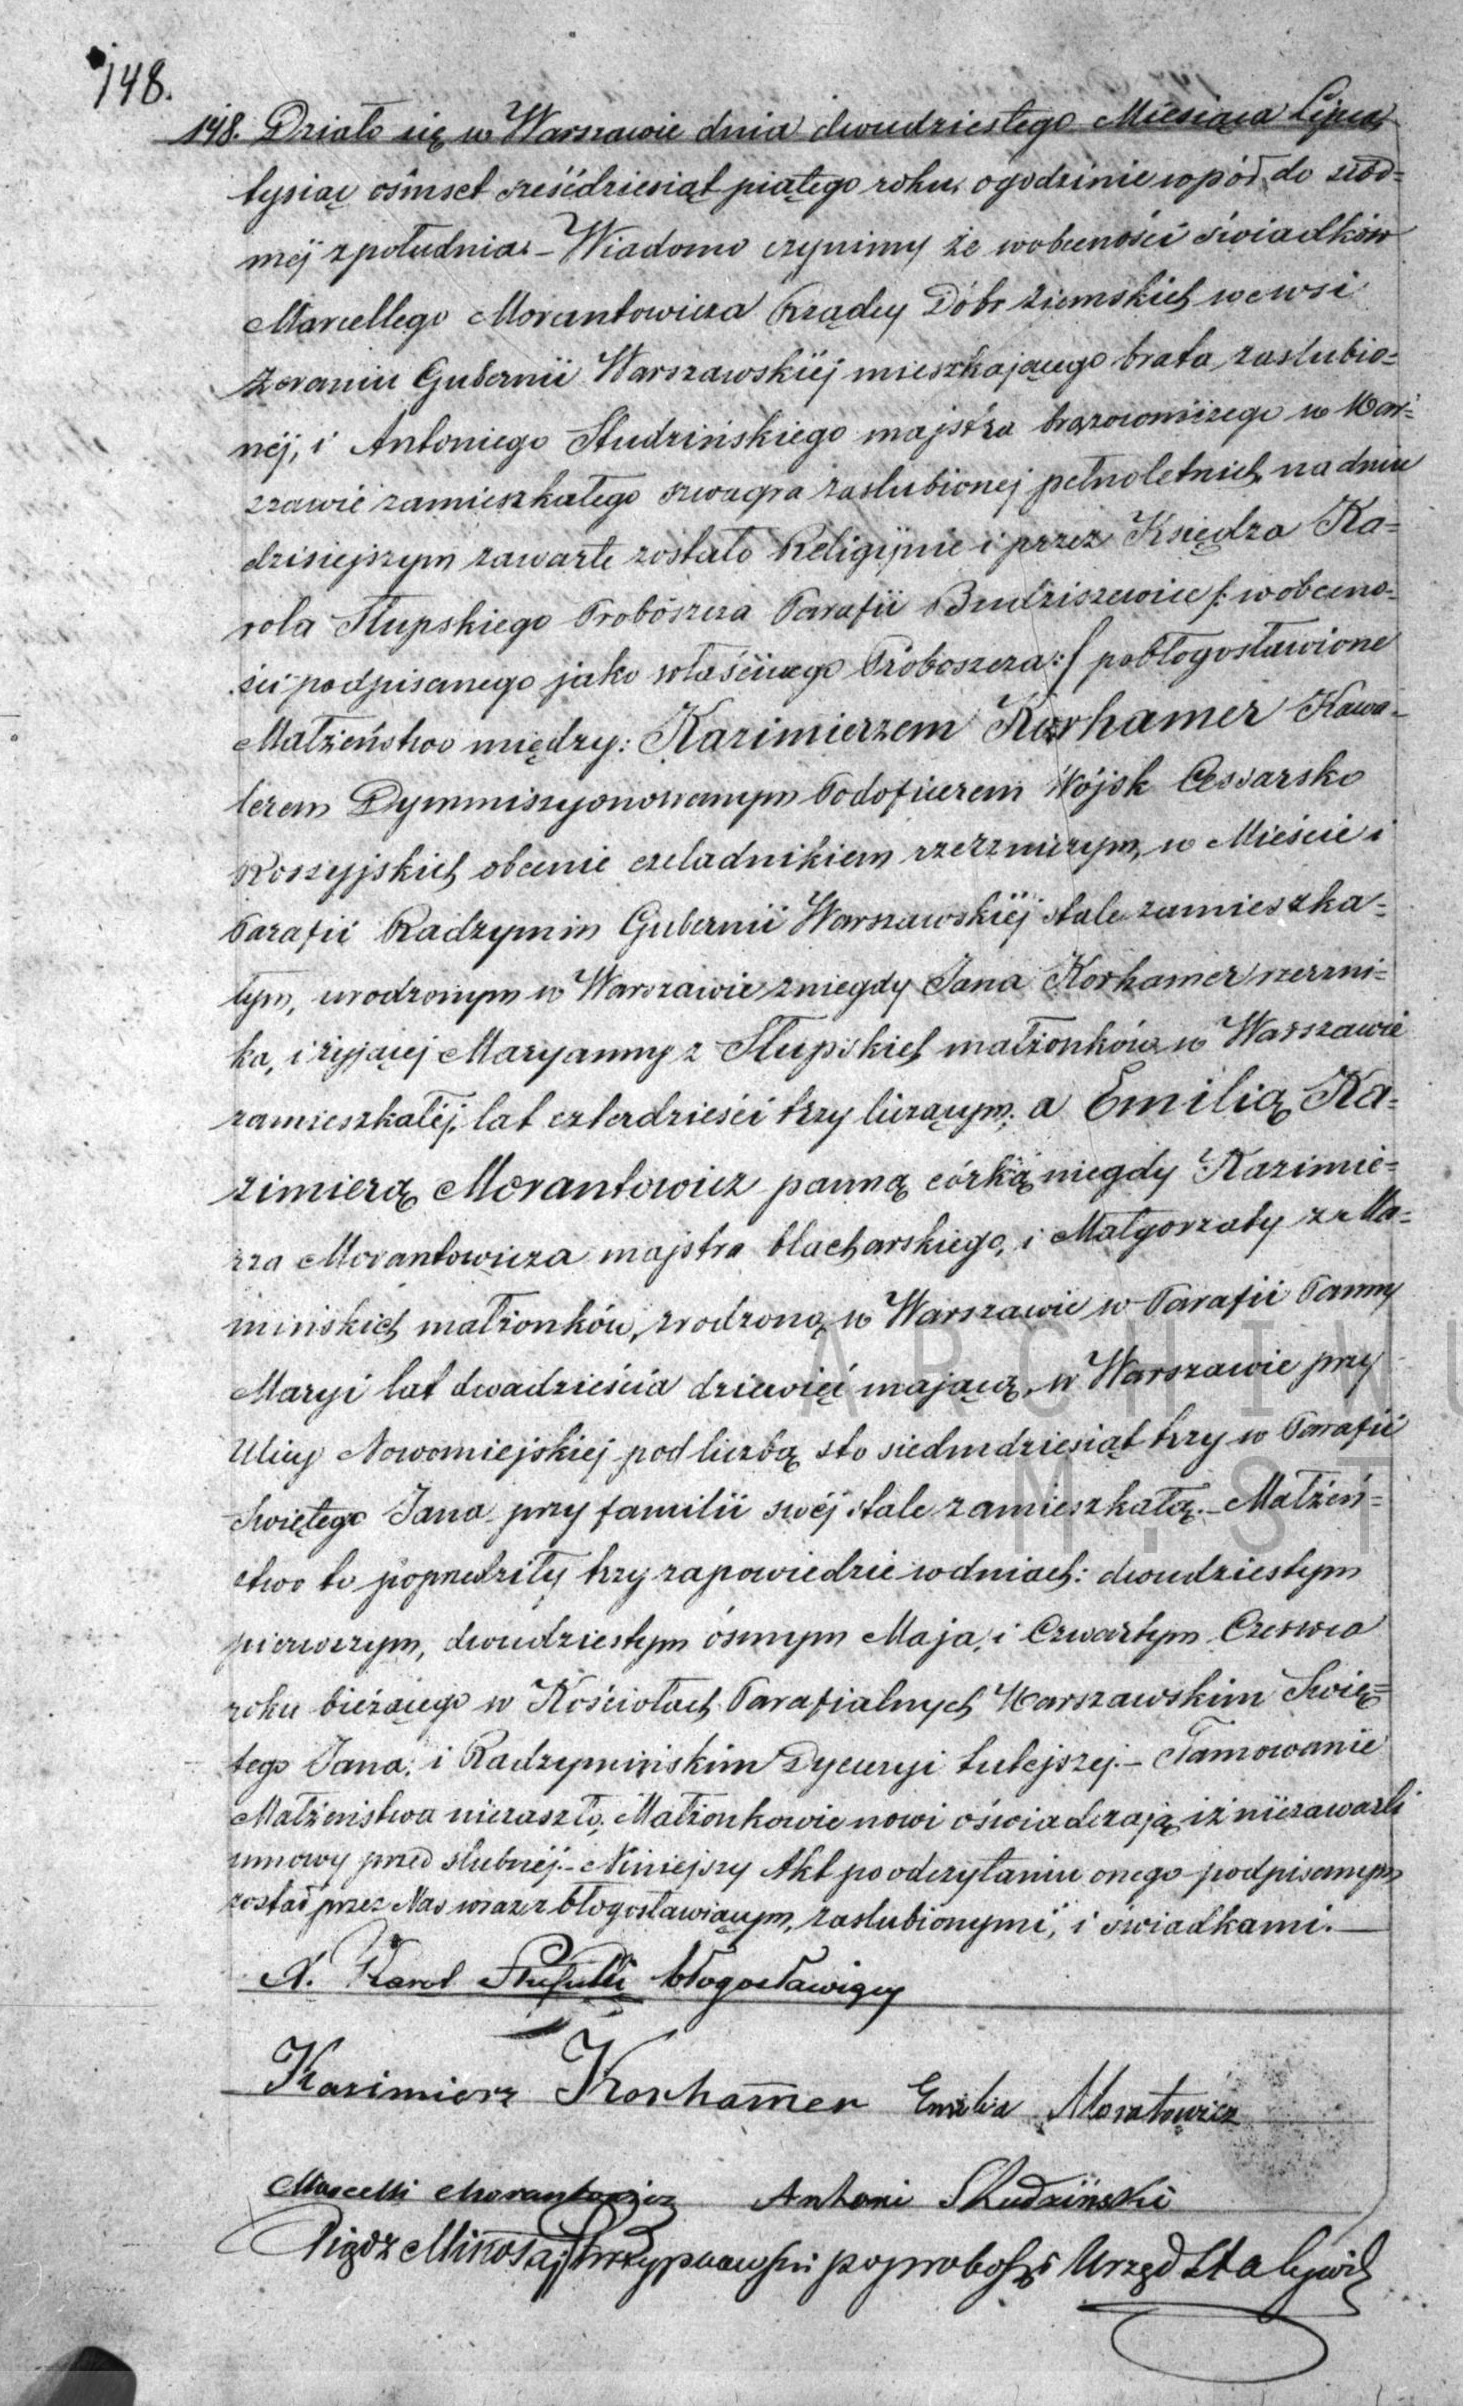 148.
148. Działo się w Warszawie dnia dwudziestego Miesiąca Lipca
tysiąc ośmset sześćdziesiąt piątego roku, o godzinie wpół do siód=
mej z południa. – Wiadomo czynimy że w obecności świadków
Marcellego Morantowicza Rządcy Dóbr Ziemskich we wsi
Zeraniu Gubernii Warszawskiéj mieszkającego brata zaślubio=
néj, i Antoniego Studzińskiego majstra brązowniczego w War=
szawie zamieszkałego szwagra zaślubionej pełnoletnich, na dniu
dzisiejszym zawarte zostało Religijnie i przez Księdza Ka=
rola Słupskiego Probószcza Parafii Budziszewice /: w obecno=
ści podpisanego jako właściwego Proboszcza :/ pobłogosławione
Małżeństwo między: Kazimierzem Korhamer Kawa=
lerem Dymmissyonowanym Podoficerem Wójsk Cessarsko
Rossyjskich obecnie czeladnikiem rzeźniczym, w Mieście i
Parafii Radzymin Gubernii Warszawskiéj stale zamieszka=
łym, urodzonym w Warszawie z niegdy Jana Korhamer rzeźni=
ka, i żyjącej Maryanny z Słupskich małżonków w Warszawie
zamieszkałéj, lat czterdzieści trzy liczącym; a Emilią Ka=
zimierą Morantowicz panną córką niegdy Kazimie=
rza Morantowicza majstra blacharskiego, i Małgorzaty z Ma=
mińskich małżonków, zrodzoną w Warszawie w Parafii Panny
Maryi lat dwadzieścia dziewięć mającą, w Warszawie przy
Ulicy Nowomiejskiej pod liczbą sto siedmdziesiąt trzy w Parafii
Swiętego Jana przy familii swéj stale zamieszkałą. – Małżeń=
stwo to poprzedziły trzy zapowiedzie w dniach: dwudziestym
pierwszym, dwudziestym ósmym Maja, i Czwartym Czerwca
roku bieżącego w Kościołach Parafialnych Warszawskim Swię=
tego Jana, i Radzymińskim Dyecezyi tutejszej. – Tamowanie
Małżeństwa niezaszło. Małżonkowie nowi oświadczają, iż niezawarli
umowy przed ślubnéj. – Niniejszy Akt po odczytaniu onego podpisanym
został przez Nas wraz z błogosławiącym, zaślubionymi, i świadkami. –
X. Karol Słupski błogosławiący
Kazimierz Korhamer Emilia Moratowicz
Marcelli Morantowicz Antoni Studziński
Xiądz Mikołaj Urząd
ARCHIWU
M. ST